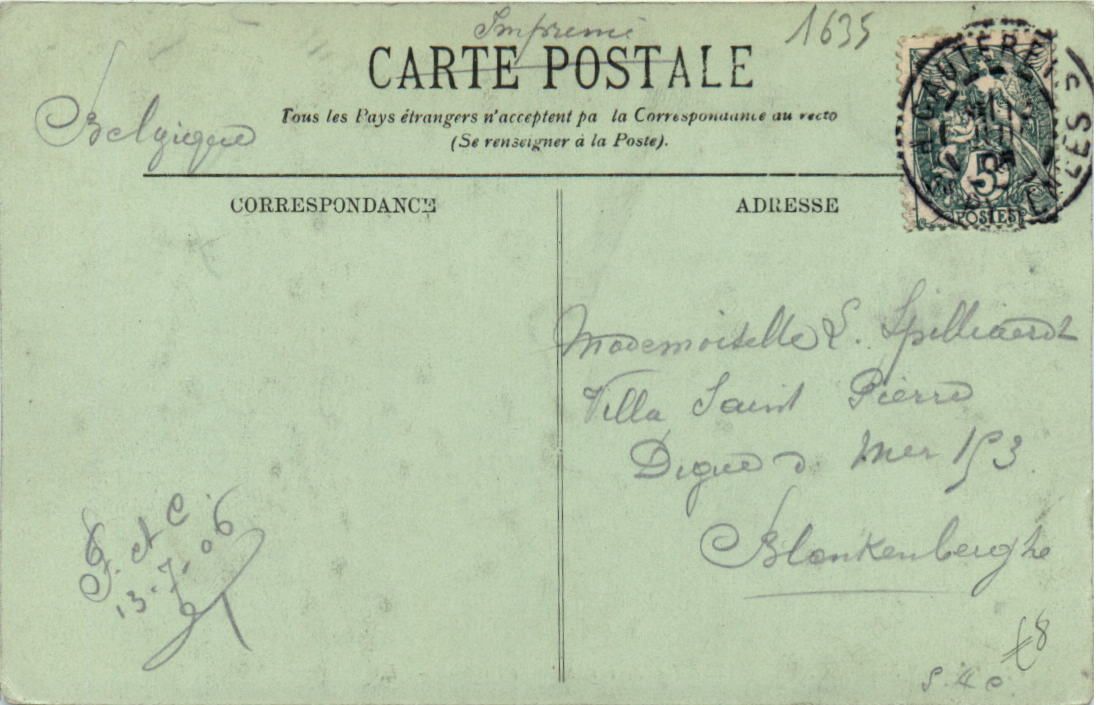 Imprimé
1635
CARTE POSTALE
Belgique
Tous les Pays étrangers n'acceptent pa la Correspondance au recto
(Se renseigner à la Poste).
CAUTERETS
HTES PYRENEES
5
POSTES
CORRESPONDANCE
ADRESSE
Mademoiselle L. Spilliaerdt
Villa Saint Pierre
Digue d. Mer 153
Blankenberghe
13-7-06
£8